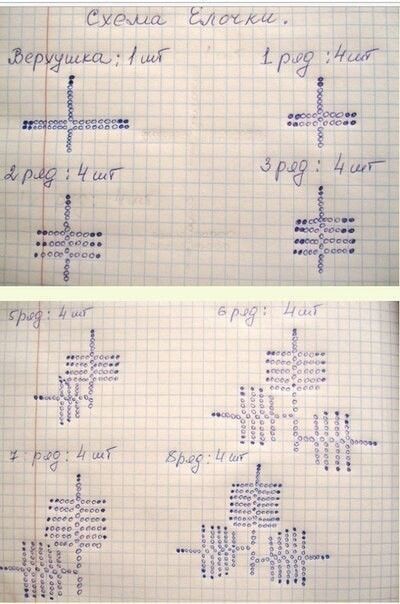 Схема Ёлочки.
Верхушка: 1 шт
1 ряд: 4 шт
2 ряд: 4 шт
3 ряд: 4 шт
5 ряд: 4 шт
6 ряд: 4 шт
7 ряд: 4 шт
8 ряд: 4 шт